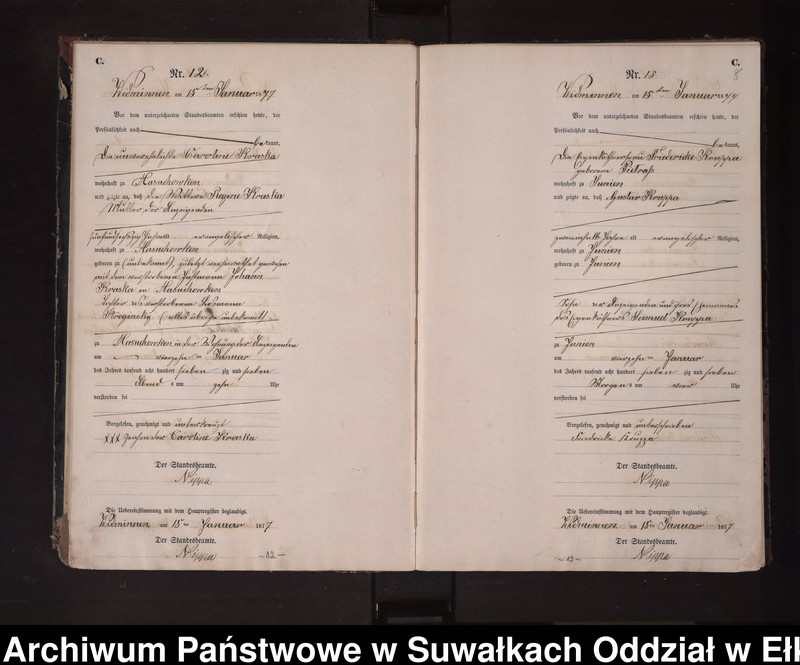 C.
Nr. 12.
Widminnen am 15ten Januar 1877
Vor dem unterzeichneten Standesbeamten erschien heute, der
Persönlichkeit nach
bekannt,
die unverehelichte Caroline Kraska
wohnhaft zu
und zeigte an, daß die Wittwe Regine Kraska
Mutter der Anzeigenden
fünfundsechzig Jahre alt evangelischer Religion,
wohnhaft zu
geboren zu (unbekannt), zuletzt verheirathet gewesen
mit dem verstorbenen Johann
Kraska in
Tochter des verstorbenen Losmann
(alles übrige unbekannt)
zu in der Wohnung der Anzeigenden
am vierzehn ten Januar
des Jahres tausend acht hundert sieben zig und sieben
Abend s um zehn Uhr
verstorben sei
Vorgelesen, genehmigt und unterkreuzt
XXX Zeichen der Caroline Kraska
Der Standesbeamte.
Nippa
Die Uebereinstimmung mit dem Hauptregister beglaubigt.
Widminnen am 15ten Januar 1877
Der Standesbeamte.
Nippa
-12-
C.
8
Nr. 13
Widminnen am 15ten Januar 1877
Vor dem unterzeichneten Standesbeamten erschien heute, der
Persönlichkeit nach
bekannt,
die Eigenkäthnerfrau Friederike
geborene
wohnhaft zu
und zeigte an, daß Gustav
zweieinhalb Jahre alt evangelischer Religion,
wohnhaft zu
geboren zu
Sohn der Anzeigenden und ihres Ehemannes
des Eigenkäthners Samuel
zu
am vierzehn ten Januar
des Jahres tausend acht hundert sieben zig und sieben
Morgen s um vier Uhr
verstorben sei
Vorgelesen, genehmigt und unterschrieben
Der Standesbeamte.
Nippa
Die Uebereinstimmung mit dem Hauptregister beglaubigt.
Widminnen am 15ten Januar 1877
Der Standesbeamte.
Nippa
-13-
Archiwum Państwowe w Suwałkach Oddział w Eł